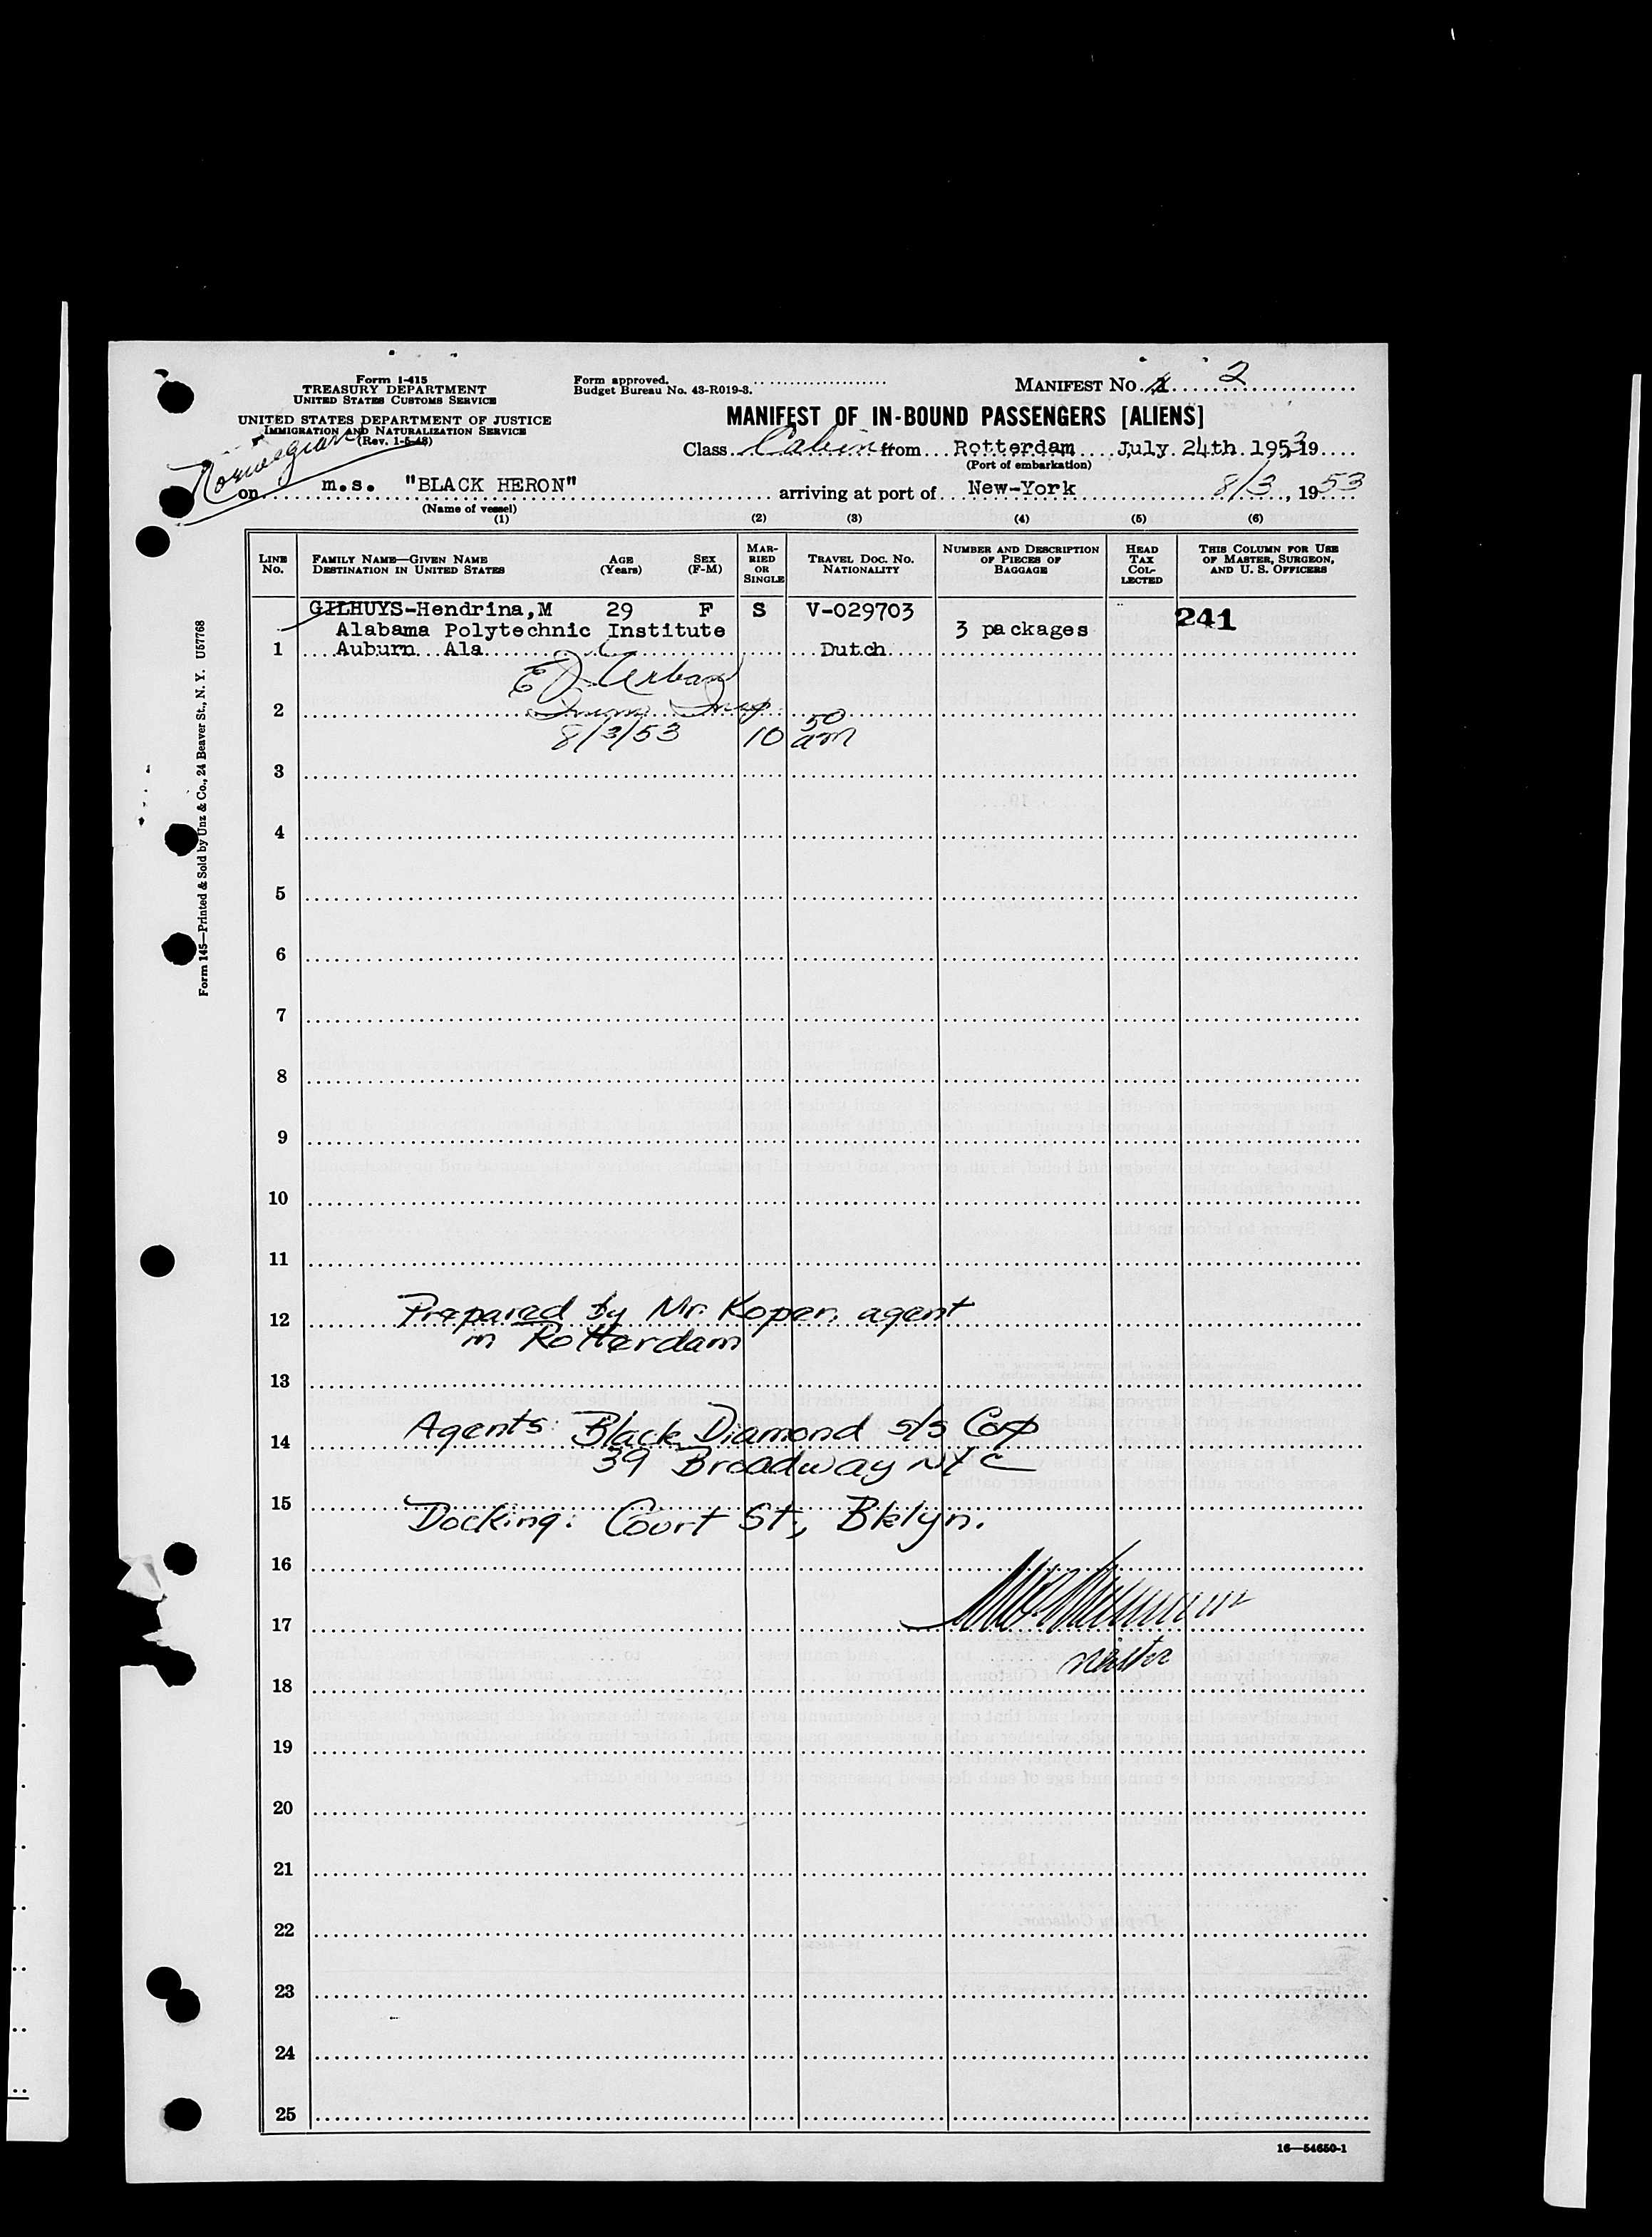 Form I-415
TREASURY DEPARTMENT
UNITED STATES CUSTOMS SERVICE
UNITED STATES DEPARTMENT OF JUSTICE
IMMIGRATION AND NATURALIZATION SERVICE
(Rev. 1-5-48)
Form approved.
Budget Bureau No. 43-R019-3.
MANIFEST No. 1 2
MANIFEST OF IN-BOUND PASSENGERS [ALIENS]
Class Cabin from Rotterdam July 24th 1953 19
(Port of embarkation)
Norwegian
on m.s. "BLACK HERON" arriving at port of New-York 8/3, 1953
(Name of vessel)
(1) (2) (3) (4) (5) (6)
LINE No. FAMILY NAME—GIVEN NAME DESTINATION IN UNITED STATES AGE (Years) SEX (F-M) MARRIED OR SINGLE TRAVEL DOC. NO. NATIONALITY NUMBER AND DESCRIPTION OF PIECES OF BAGGAGE HEAD TAX COLLECTED THIS COLUMN FOR USE OF MASTER, SURGEON, AND U. S. OFFICERS
GILHUYS-Hendrina,M 29 F S V-029703 241
Alabama Polytechnic Institute 3 packages
1 Auburn Ala Dutch
E J Urban
2 Immi Insp
8/3/53 10 50 am
3
4
5
6
7
8
9
10
11
12 Prepared by Mr. Koper, agent
in Rotterdam
13
14 Agents: Black Diamond s/s Corp
39 Broadway NYC
15
Docking: Court St., Bklyn.
16
17
master
18
19
20
21
22
23
24
25
16—54650-1
Form 145—Printed & Sold by Unz & Co., 24 Beaver St., N. Y. U57768